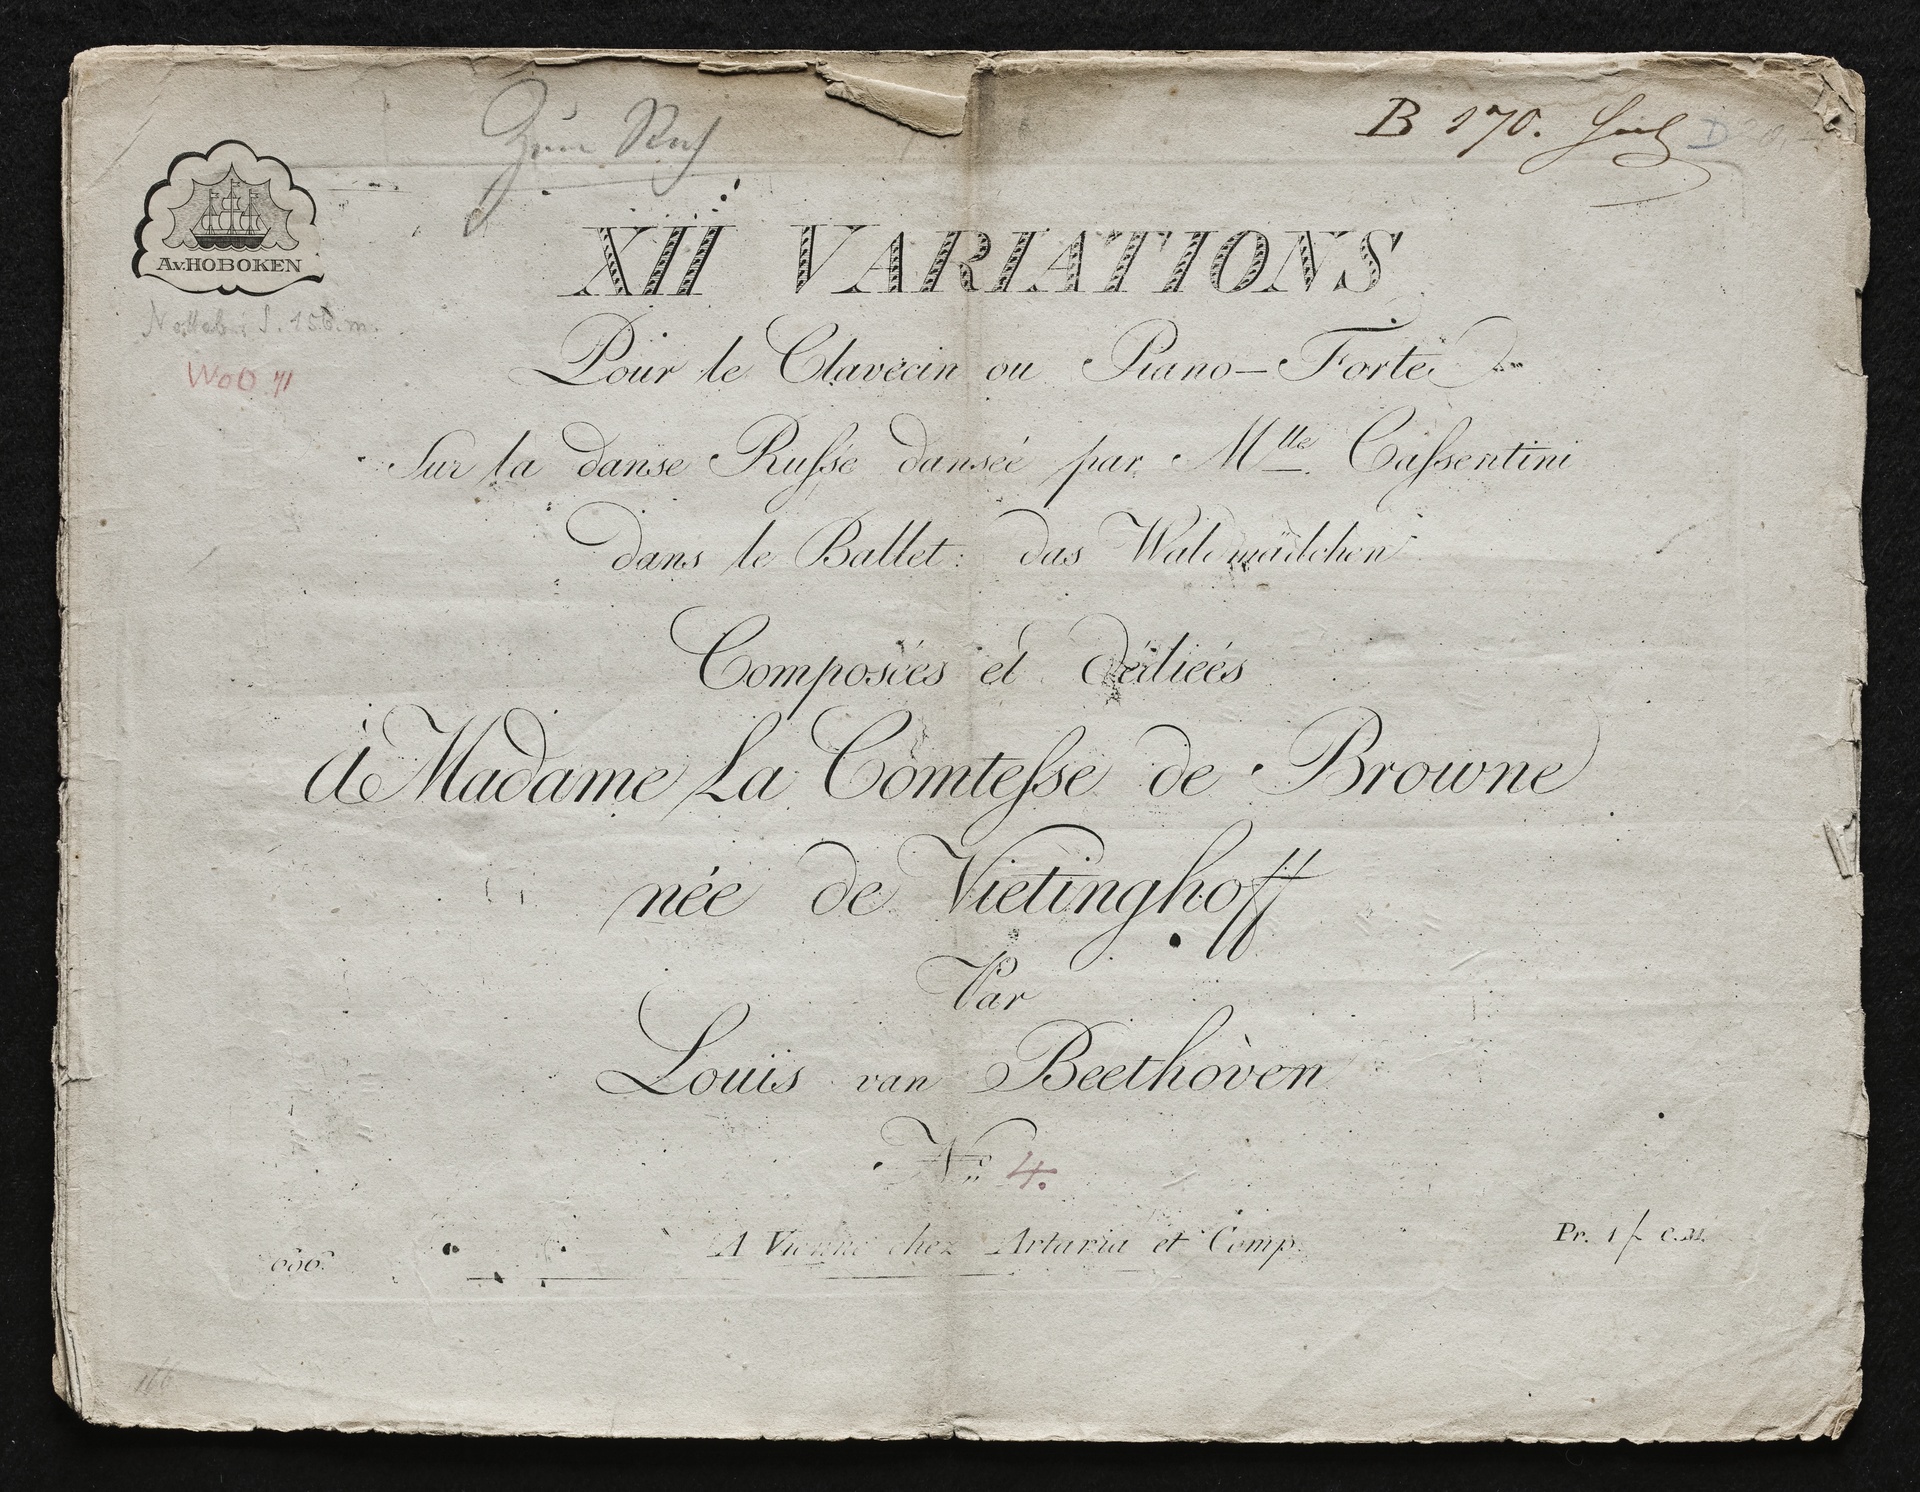 B 170.
A.v.HOBOKEN
XII VARIATIONS
S. 158. m.
WoO 71
Pour le Clavecin ou Piano-Forte
Sur la danse Russe dansée par Mlle. Cassentini
dans le Ballet: das Waldmädchen
Composées et dédiées
à Madame La Comtesse de Browne
née de Vietinghoff
Par
Louis van Beethoven
No. 4.
A Vienne chez Artaria et Comp.
Pr. 1 f. C.M.
696.